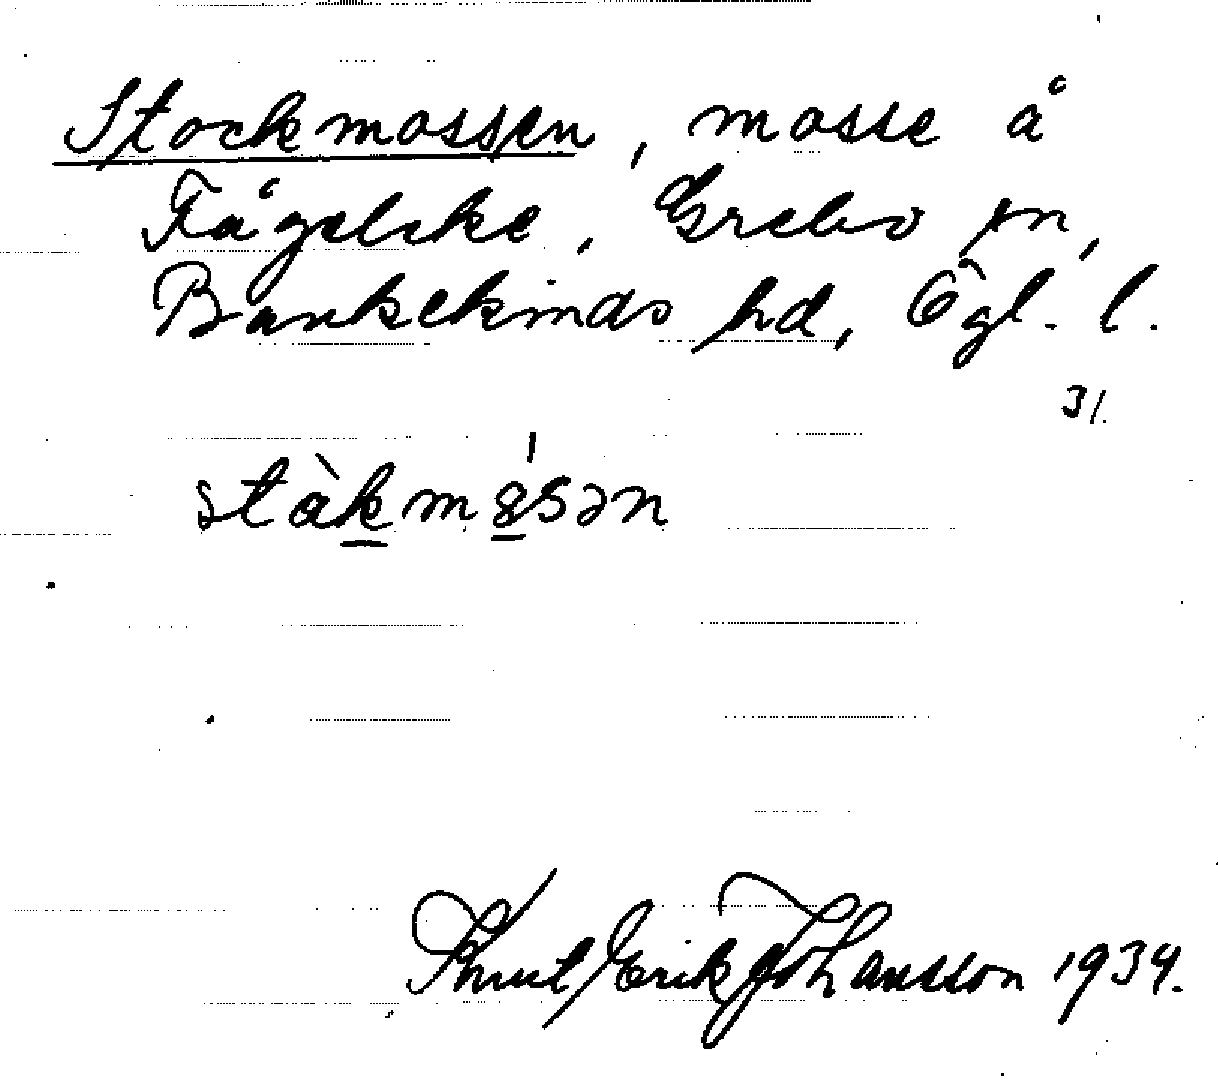 Stockmossen, mosse å
Fågeleke, Grebo sn,
Bankekinds hd, Ögl. l.
31.
ståkmɷsən
Knut Erik Johansson 1934.